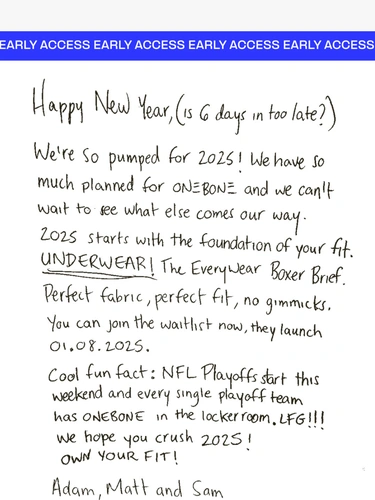 EARLY ACCESS EARLY ACCESS EARLY ACCESS EARLY ACCESS
Happy New Year, (is 6 days in too late?)
We're so pumped for 2025! We have so
much planned for ONEBONE and we can't
wait to see what else comes our way.
2025 starts with the foundation of your fit.
UNDERWEAR! The Everywear Boxer Brief.
Perfect fabric, perfect fit, no gimmicks.
You can join the waitlist now, they launch
01.08.2025.
Cool fun fact: NFL Playoffs start this
weekend and every single playoff team
has ONEBONE in the locker room. LFG!!!
We hope you crush 2025!
OWN YOUR FIT!
Adam, Matt and Sam